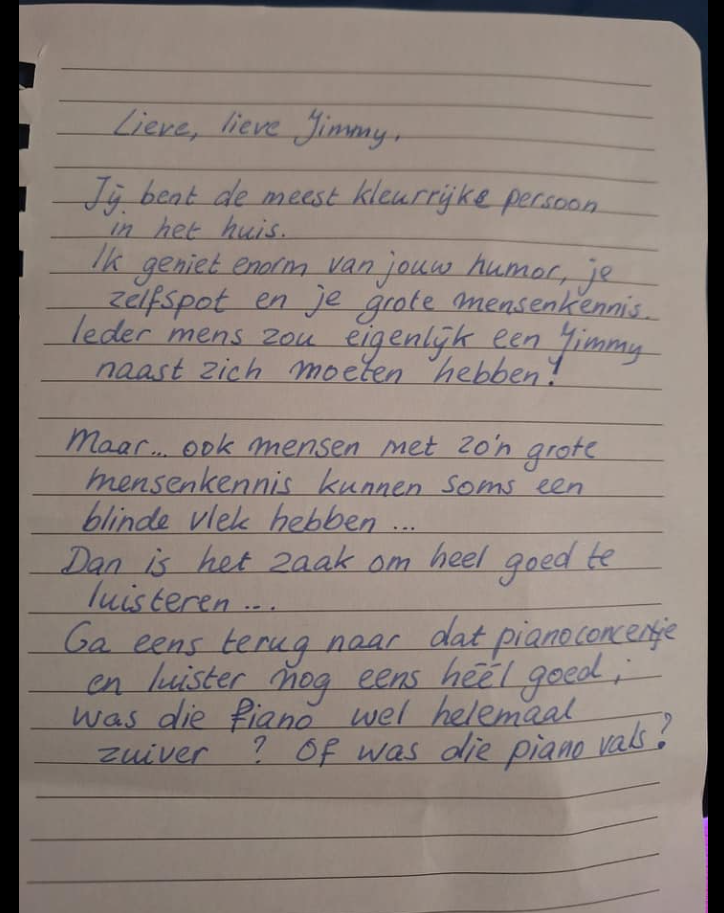 Lieve, lieve Jimmy,
Jij bent de meest kleurrijke persoon
in het huis.
Ik geniet enorm van jouw humor, je
zelfspot en je grote mensenkennis.
Ieder mens zou eigenlijk een Jimmy
naast zich moeten hebben!
Maar... ook mensen met zo'n grote
mensenkennis kunnen soms een
blinde vlek hebben ...
Dan is het zaak om heel goed te
luisteren ...
Ga eens terug naar dat pianoconcertje
en luister nog eens héél goed;
was die piano wel helemaal
zuiver ? Of was die piano vals?